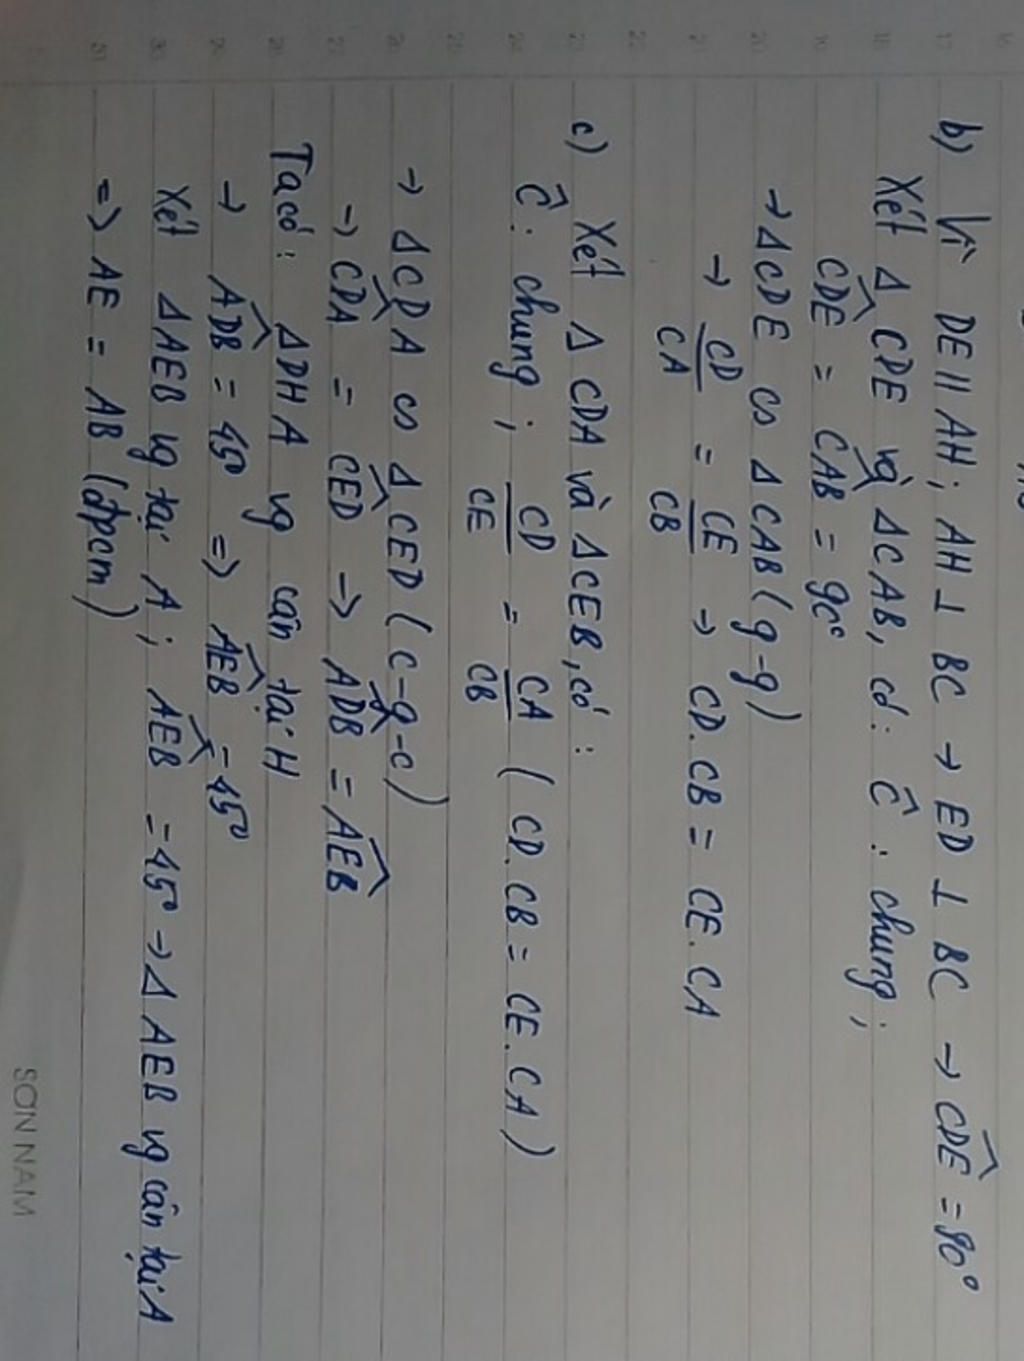 b) Vì DE // AH ; AH ⊥ BC → ED ⊥ BC → CDE = 90°
Xét Δ CDE và Δ CAB, có : Ĉ : chung ;
CDE = CAB = 90°
→ Δ CDE ᔕ Δ CAB ( g - g )
→ CD/CA = CE/CB → CD . CB = CE . CA
c) Xét Δ CDA và Δ CEB, có :
Ĉ : chung ; CD/CE = CA/CB ( CD . CB = CE . CA )
→ Δ CDA ᔕ Δ CED ( c - g - c )
→ CDA = CED → ADB = AEB
Ta có : Δ DHA vg cân tại H
→ ADB = 45° => AEB = 45°
Xét Δ AEB vg tại A ; AEB = 45° → Δ AEB vg cân tại A
=> AE = AB ( đpcm )
SƠN NAM